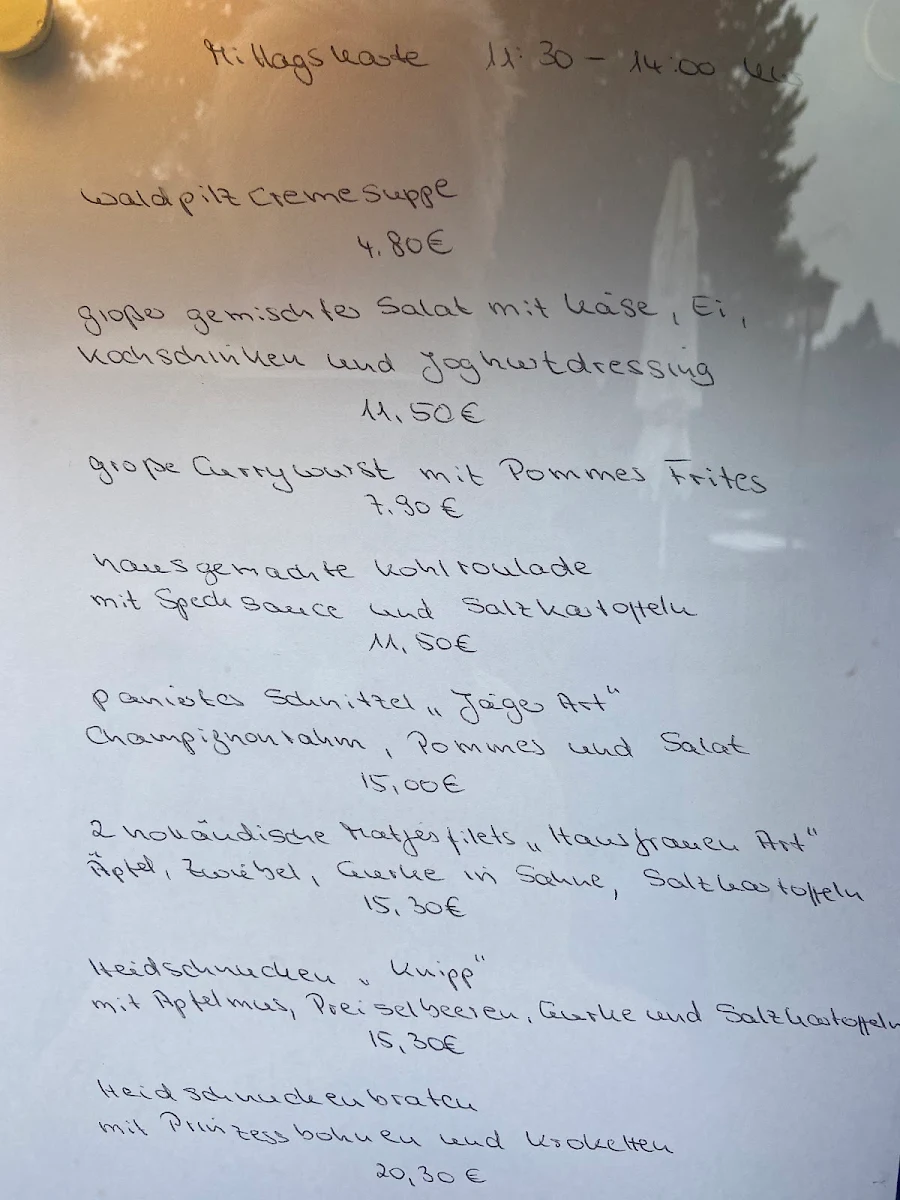 Mittagskarte 11:30 - 14:00 Uhr
Waldpilzcremesuppe
4,80€
großer gemischter Salat mit Käse, Ei,
Kochschinken und Joghurtdressing
11,50€
große Currywurst mit Pommes Frites
7,90€
hausgemachte Kohlroulade
mit Specksauce und Salzkartoffeln
11,50€
paniertes Schnitzel „Jäger Art“
Champignonrahm, Pommes und Salat
15,00€
2 holländische Matjesfilets „Hausfrauen Art“
Äpfel, Zwiebel, Gurke in Sahne, Salzkartoffeln
15,30€
Heidschnucken „Knipp“
mit Apfelmus, Preiselbeeren, Gurke und Salzkartoffeln
15,30€
Heidschnuckenbraten
mit Prinzessbohnen und Kroketten
20,30€